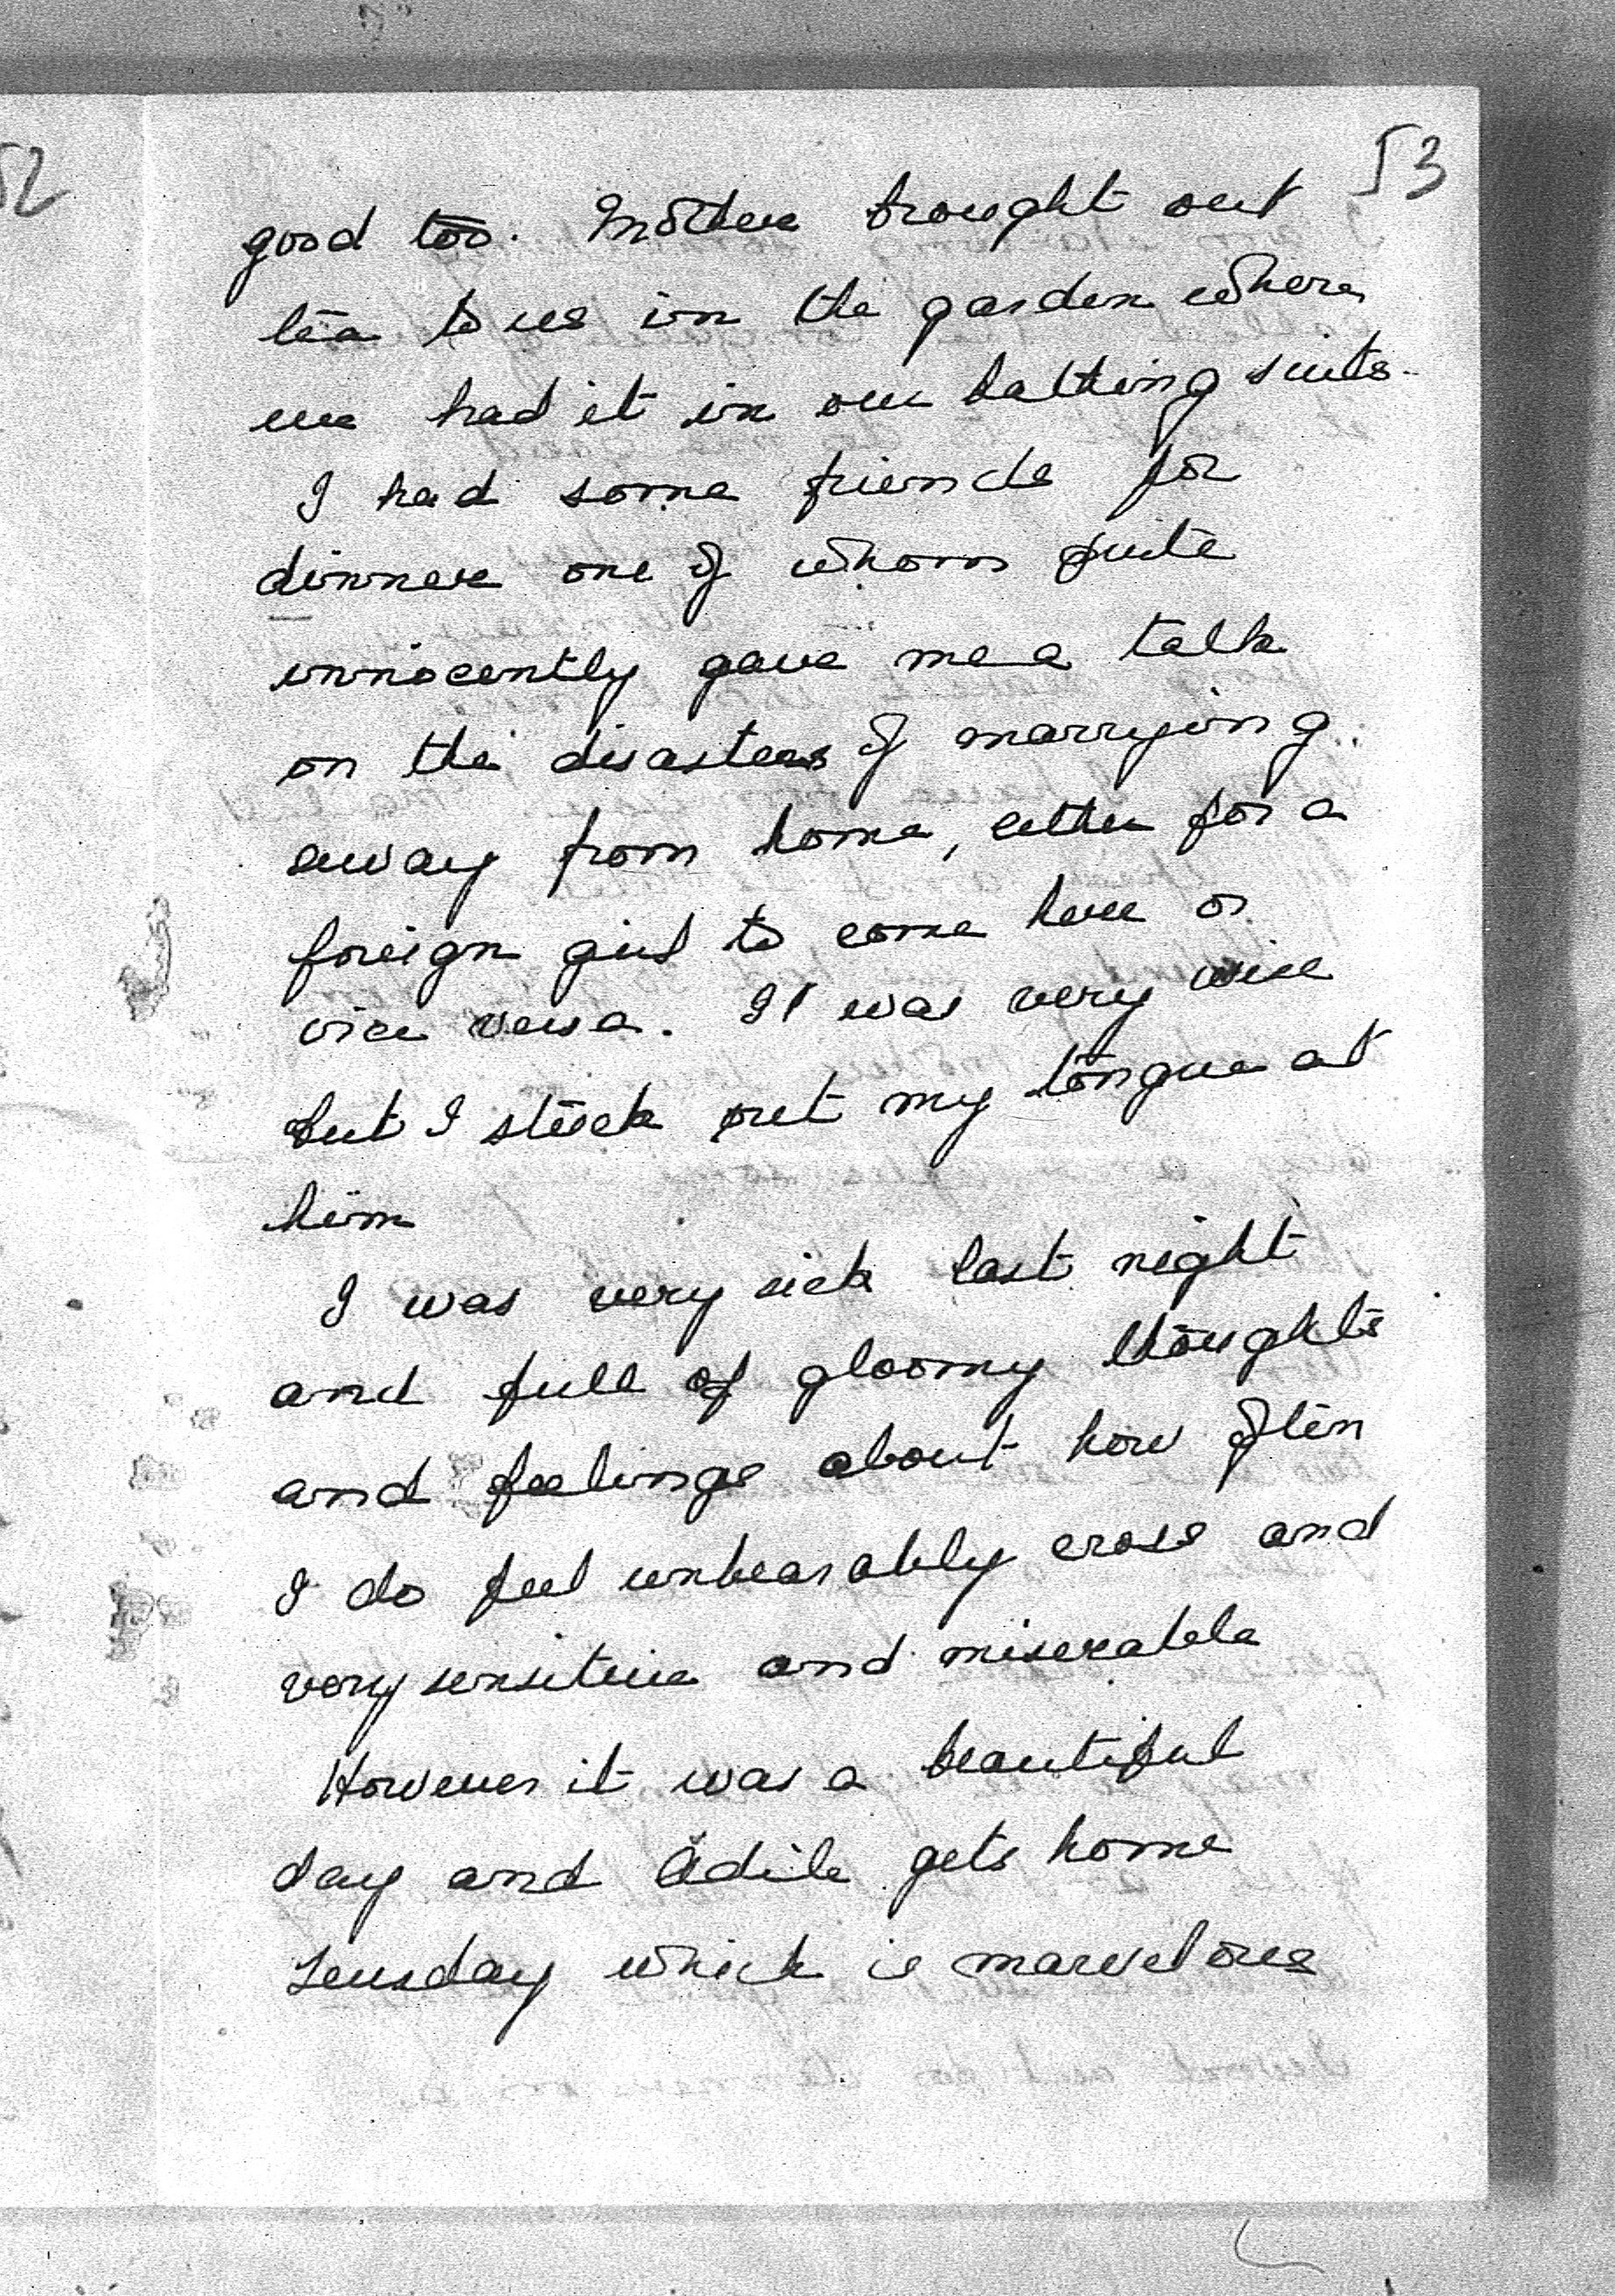 53
52
good too. Mother brought out
tea to us in the garden where
we had it in our bathing suits.
I had some friends for
dinner one of whom quite
innocently gave me a talk
on the disasters of marrying
away from home, either for a
foreign girl to come here or
vice versa. It was very wise
but I stuck out my tongue at
him
I was very sick last night
and full of gloomy thoughts
and feelings about how often
I do feel unbearably cross and
very sensitive and miserable
However it was a beautiful
day and Adile gets home
Teusday which is marvelous